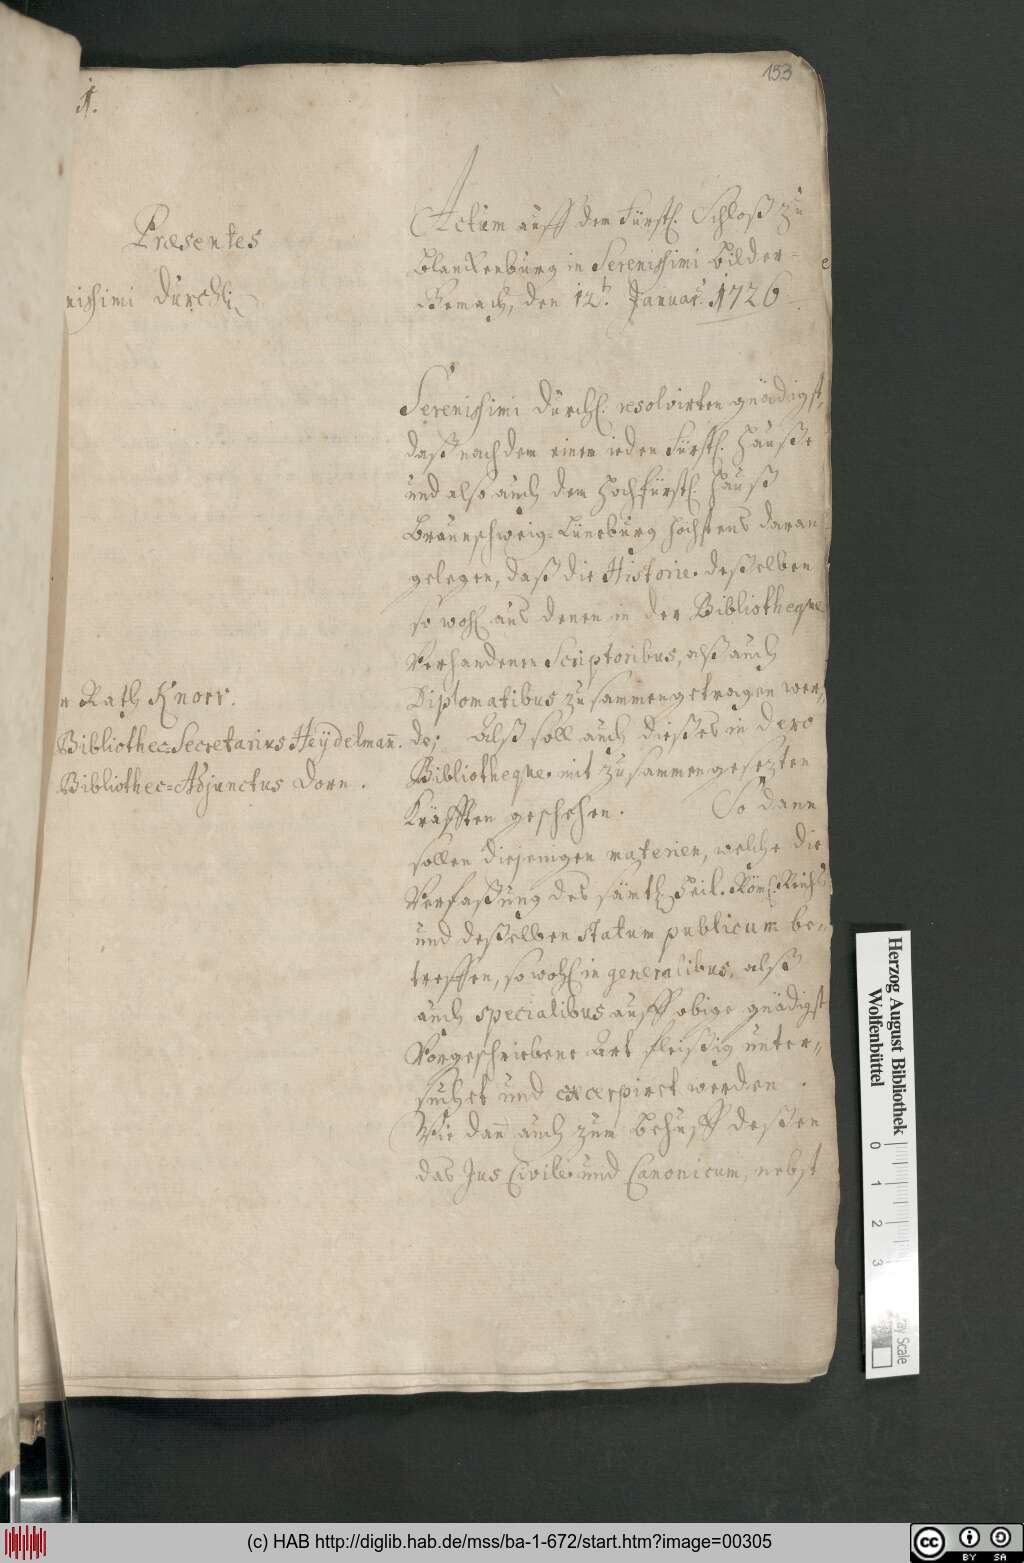 153
1.
Præsentes
nissimi Durchl.
r Rath Knorr.
Bibliothec=Secretarius Heÿdelmañ.
Bibliothec=Adjunctus Dorn.
Actum auff dem Fürstl. Schloß zu
Blanckenburg in Serenissimi Bilder=
Gemach, den 12t. Januar. 1726
Serenissimi Durchl. resolvirten gnädigst,
daß nachdem einem ieden Fürstl. Hauße
und also auch dem Hochfürstl. Hauß
Braunschweig=Lüneburg höchstens daran
gelegen, daß die Historie deßelben
so wohl aus denen in der Bibliotheque
Verhandenen Scriptoribus, alß auch
Diplomatibus zusammengetragen wer=
de; Alß soll auch dießes in dero
Bibliotheque mit zusammengesezten
Kräfften geschehen. So dann
sollen diejenigen materien, welche die
Verfaßung des sämtl. Heil. Röm. Reichs
und deßelben statum publicum be=
treffen, so wohl in generalibus, alß
auch specialibus auff obige gnädigst
Vorgeschriebene Art fleißig unter=
suchet und excerpiret werden.
Wie dañ auch zum Behuff deßen
das Jus Civile und Canonicum, nebst
Herzog August Bibliothek
Wolfenbüttel
0 1 2 3
ray Scale
(c) HAB http://diglib.hab.de/mss/ba-1-672/start.htm?image=00305
cc BY SA